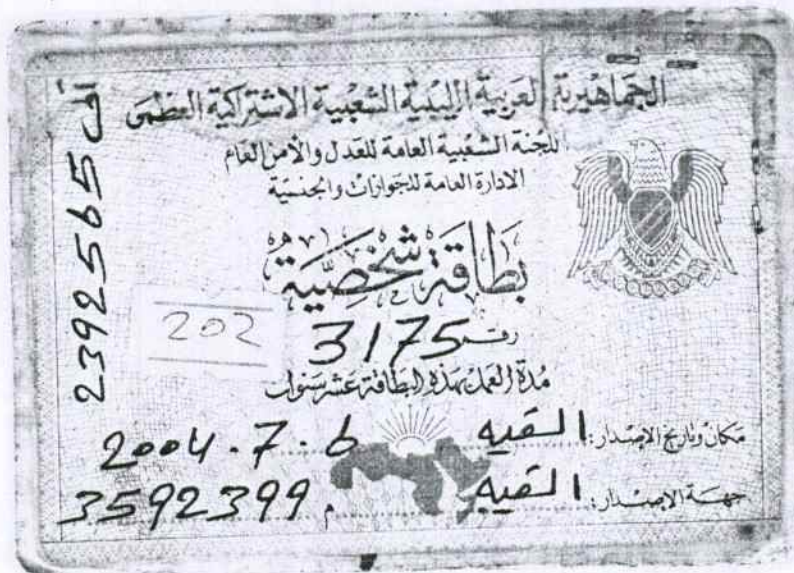 الجماهيرية العربية الليبية الشعبية الاشتراكية العظمى
اللجنة الشعبية العامة للعدل والأمن العام
الادارة العامة للجوازات والجنسية
بطاقة شخصية
رقم 3175
مدة العمل بهذه البطاقة عشر سنوات
مكان وتاريخ الاصدار: القيه 2004.7.6
جهة الاصدار: القيه م 3592399
2392565
202